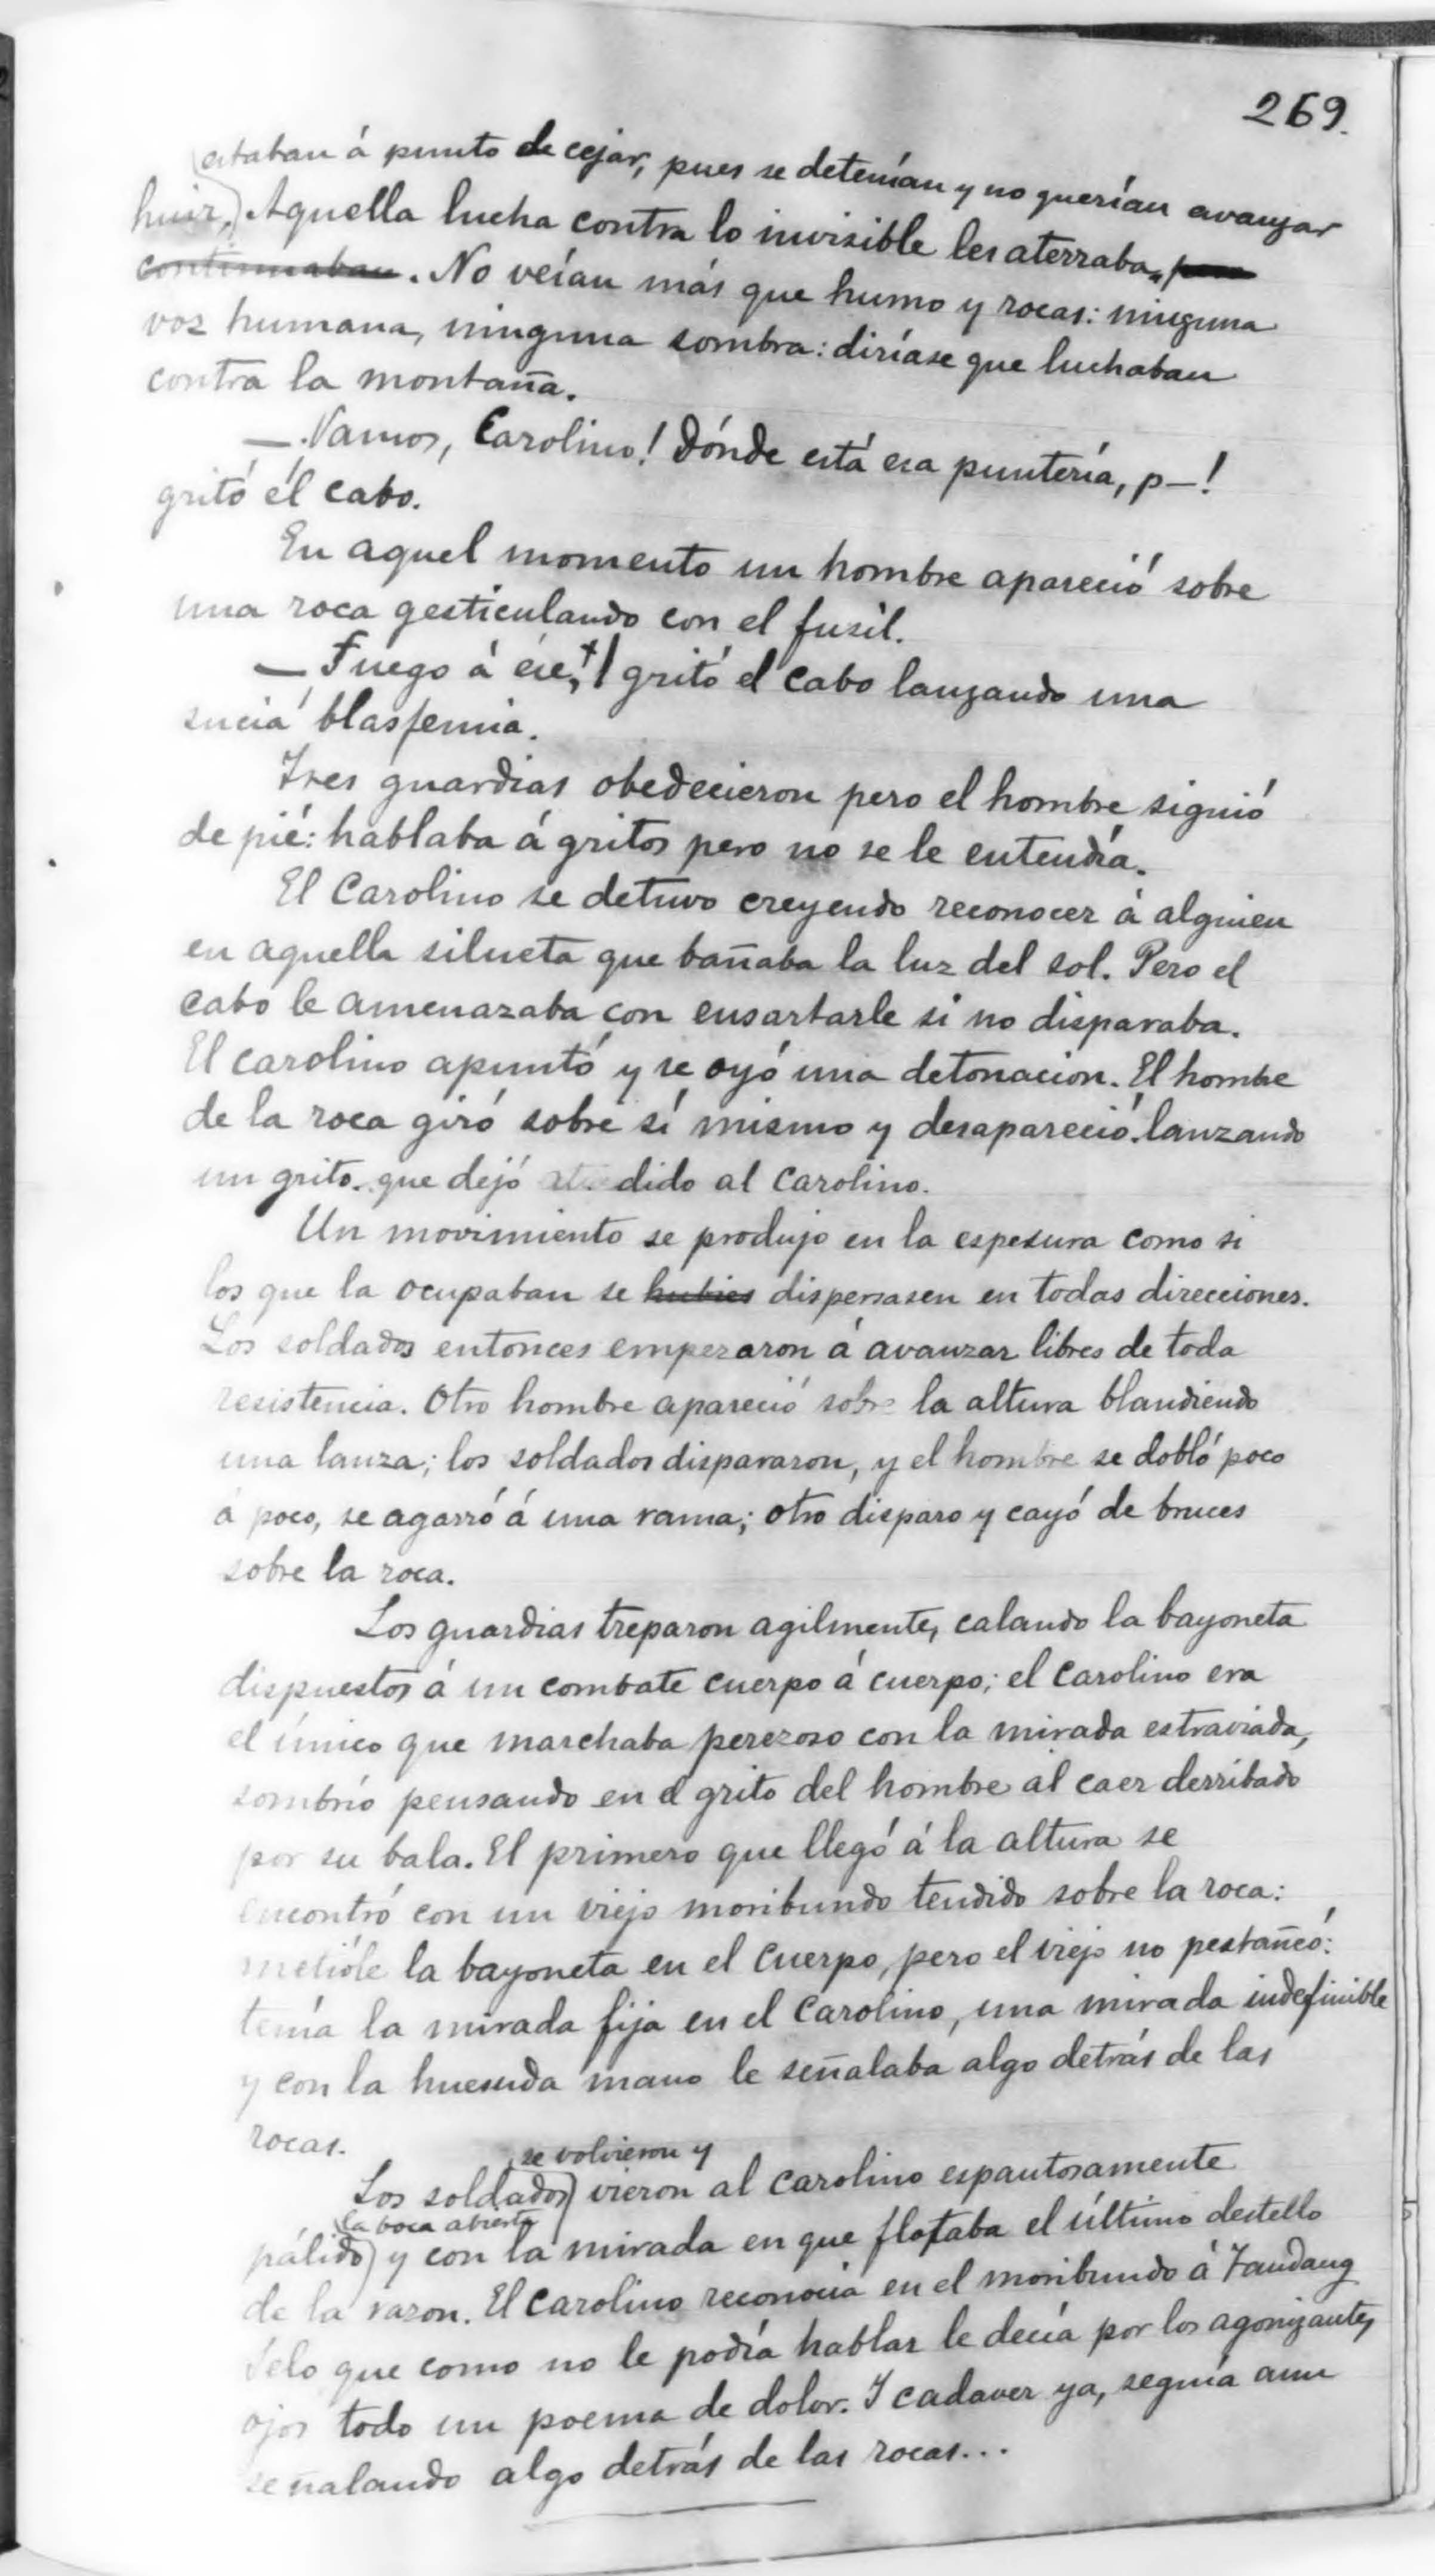 269.
estaban á punto de cejar, pues se detenían y no querían avanzar
huir,) Aquella lucha contra lo invisible les aterraba, pero
continuaban. No veían más que humo y rocas: ninguna
voz humana, ninguna sombra: diríase que luchaban
contra la montaña.
— Vamos, Carolino! Dónde está esa puntería, p—!
gritó el cabo.
En aquel momento un hombre apareció sobre
una roca gesticulando con el fusil.
— Fuego á ese,! gritó el cabo lanzando una
sucia blasfemia.
Tres guardias obedecieron pero el hombre siguió
de pié: hablaba á gritos pero no se le entendía.
El Carolino se detuvo creyendo reconocer á alguien
en aquella silueta que bañaba la luz del sol. Pero el
cabo le amenazaba con ensartarle si no disparaba.
El carolino apuntó y se oyó una detonacion. El hombre
de la roca giró sobre sí mismo y desapareció lanzando
un grito que dejó dido al Carolino.
Un movimiento se produjo en la espesura como si
los que la ocupaban se hubies dispersasen en todas direcciones.
Los soldados entonces empezaron á avanzar libres de toda
resistencia. Otro hombre apareció sobre la altura blandiendo
una lanza; los soldados dispararon, y el hombre se dobló poco
á poco, se agarró á una rama; otro disparo y cayó de bruces
sobre la roca.
Los guardias treparon agilmente, calando la bayoneta
dispuestos á un combate cuerpo á cuerpo; el Carolino era
el único que marchaba perezoso con la mirada estraviada,
sombrío pensando en el grito del hombre al caer derribado
por su bala. El primero que llegó á la altura se
encontró con un viejo moribundo tendido sobre la roca:
metióle la bayoneta en el cuerpo, pero el viejo no pestañeó:
tenía la mirada fija en el Carolino, una mirada indefinible
y con la huesuda mano le señalaba algo detrás de las
rocas.
se volvieron y
Los soldados) vieron al Carolino espantosamente
la boca abierta
pálido) y con la mirada en que flotaba el último destello
de la razon. El Carolino reconocía en el moribundo á Tandang
Selo que como no le podía hablar le decía por los agonizantes
ojos todo un poema de dolor. Y cadaver ya, seguía aun
señalando algo detrás de las rocas...